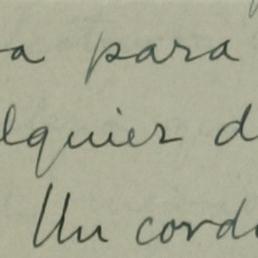 a para
lquier d
Un cord